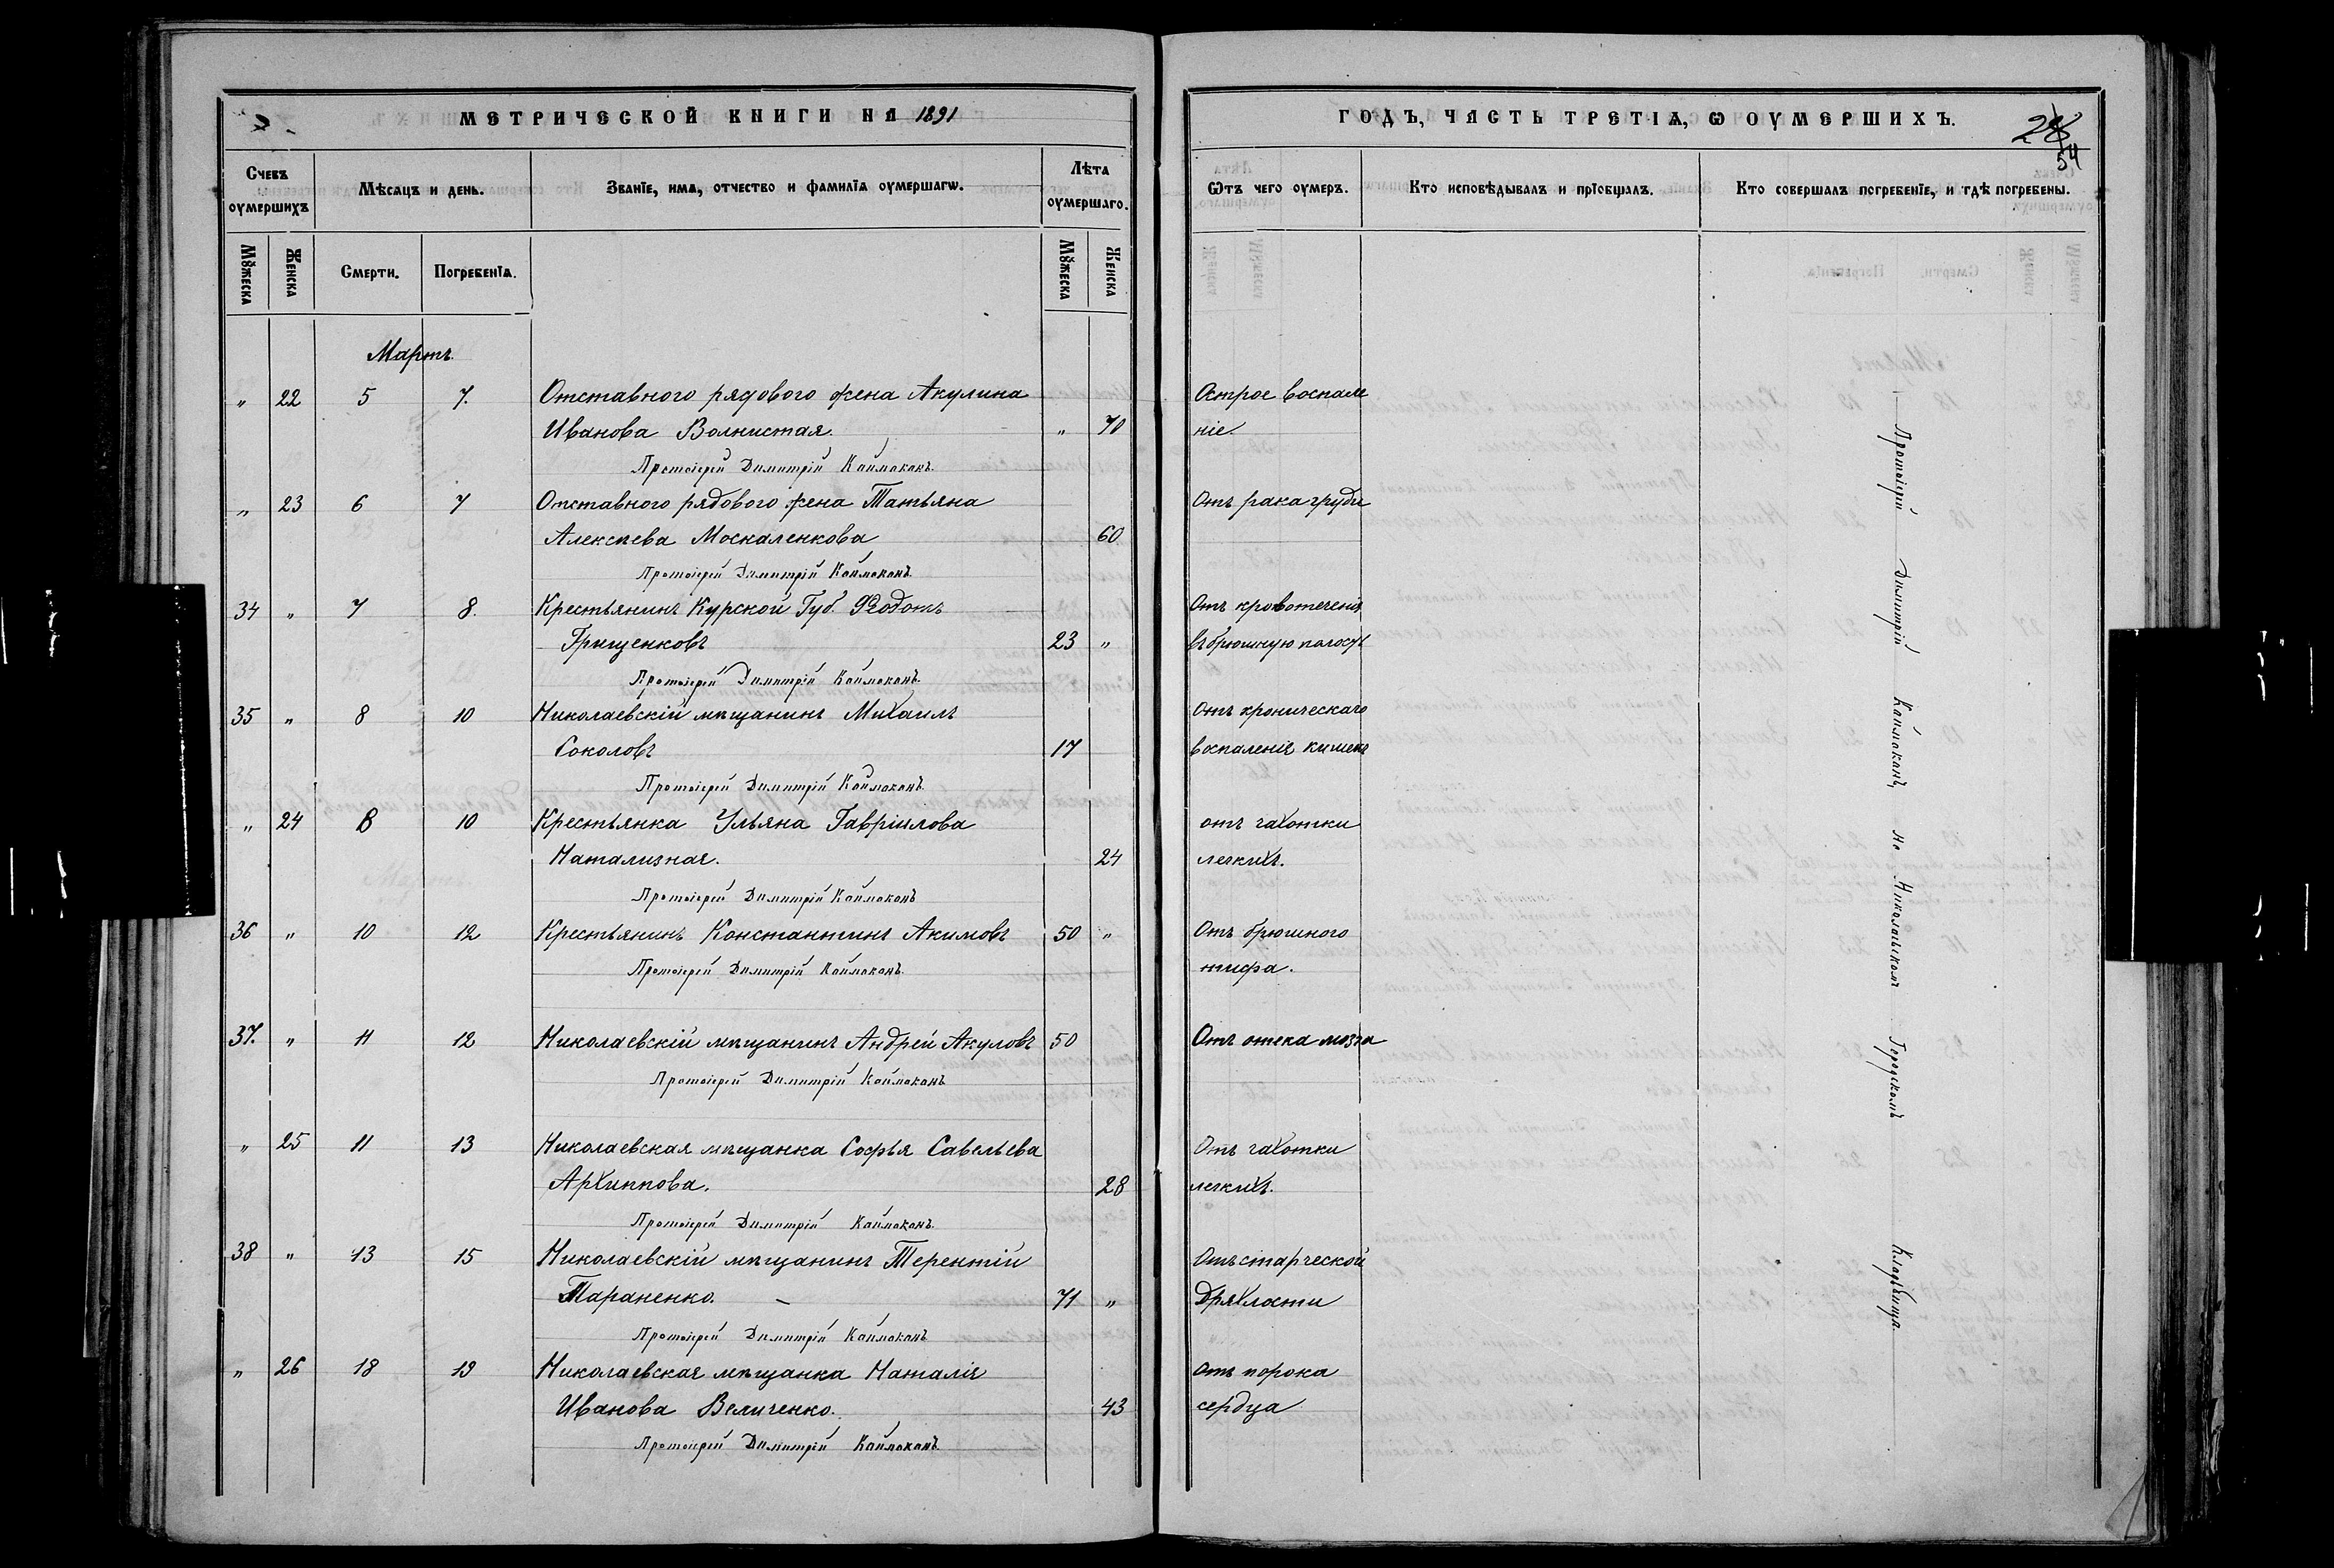 МЕТРИЧЕСКОЙ КНИГИ НА 1891
Счетъ оумершихъ
Мѣсяцъ и день.
Званїе, имя, отчество и фамилїя оумершагѡ.
Лѣта оумершаго.
Мꙋжеска
Женска
Смерти.
Погребенїя.
Мꙋжеска
Женска
Мартъ.
" 22 5 7. Отставного рядового жена Акулина
Иванова Волнистая. " 70
Протоіерей Димитрій Каймаканъ.
" 23 6 7 Отставного рядового жена Татьяна
Алексѣева Москаленкова 60
Протоіерей Димитрій Каймаканъ.
34 " 7 8. Крестьянинъ Курской Губ. Ѳеодотъ
Грищенковъ 23 "
Протоіерей Димитрій Каймаканъ.
35 " 8 10 Николаевскій мѣщанинъ Михаилъ
Соколовъ 17
Протоіерей Димитрій Каймаканъ.
" 24 8 10 Крестьянка Ульяна Гавріилова
Натализная. 24
Протоіерей Димитрій Каймаканъ
36 " 10 12 Крестьянинъ Константинъ Акимовъ 50 "
Протоіерей Димитрій Каймаканъ.
37. " 11 12 Николаевскій мѣщанинъ Андрей Акуловъ 50
Протоіерей Димитрій Каймаканъ
" 25 11 13 Николаевская мѣщанка Софья Савельева
Архиппова. 28
Протоіерей Димитрій Каймаканъ.
38 " 13 15 Николаевскій мѣщанинъ Терентій
Тараненко. 71 "
Протоіерей Димитрій Каймаканъ
" 26 18 19 Николаевская мѣщанка Наталія
Иванова Величенко. 43
Протоіерей Димитрій Каймаканъ.
ГОДЪ, ЧАСТЬ ТРЕТІѦ, Ѡ ОУМЕРШИХЪ.
54
Ѿтъ чего оумеръ.
Кто исповѣдывалъ и прїобщалъ.
Кто совершалъ погребенїе, и гдѣ погребены.
Острое воспале
ніе.
Отъ рака груди
Отъ кровотеченія
въ брюшную полость
Отъ хроническаго
воспаленія кишекъ
отъ чахотки
легкихъ.
Отъ брюшного
тифа.
Отъ отека мозга
Отъ чахотки
легкихъ.
Отъ старческой
дряхлости
Отъ порока
сердца
Протоіерей Димитрій Каймаканъ, на Николаевскомъ Городскомъ Кладбищѣ.